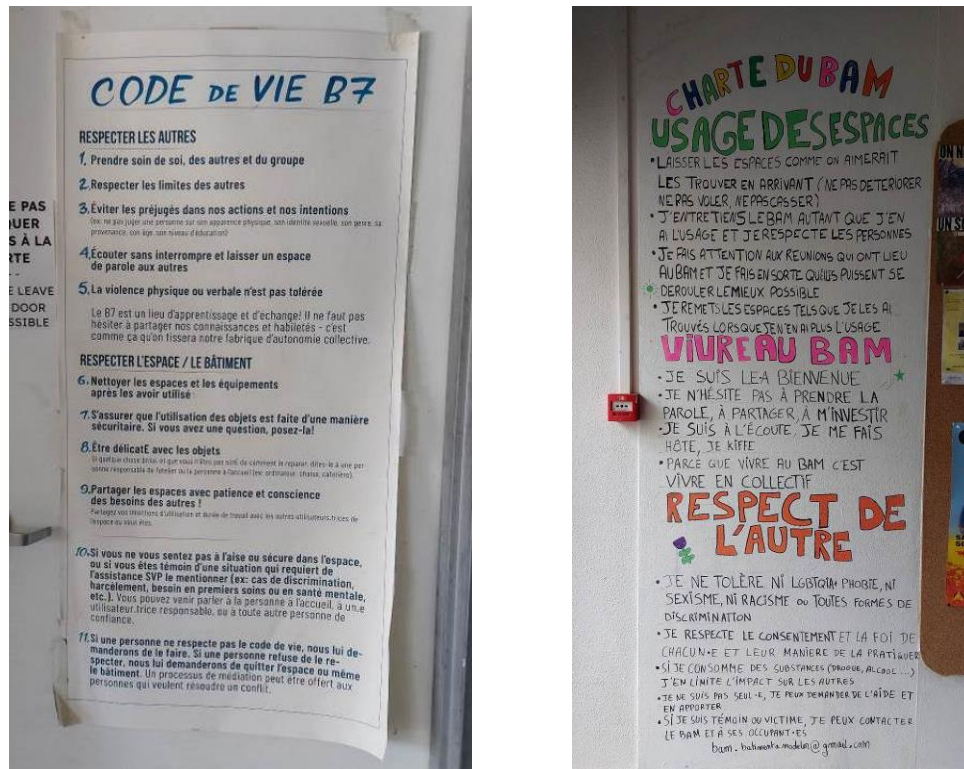 CODE DE VIE B7
RESPECTER LES AUTRES
1. Prendre soin de soi, des autres et du groupe
2. Respecter les limites des autres
3. Éviter les préjugés dans nos actions et nos intentions
(ex: ne pas juger une personne sur son apparence physique, son identité sexuelle, son genre, sa
provenance, son âge, son niveau d'éducation)
4. Écouter sans interrompre et laisser un espace
de parole aux autres
5. La violence physique ou verbale n'est pas tolérée
Le B7 est un lieu d'apprentissage et d'échange! Il ne faut pas
hésiter à partager nos connaissances et habiletés - c'est
comme ça qu'on tissera notre fabrique d'autonomie collective.
RESPECTER L'ESPACE / LE BÂTIMENT
6. Nettoyer les espaces et les équipements
après les avoir utilisé
7. S'assurer que l'utilisation des objets est faite d'une manière
sécuritaire. Si vous avez une question, posez-la!
8. Être délicatE avec les objets
9. Partager les espaces avec patience et conscience
des besoins des autres !
Partagez vos intentions d'utilisation et durée de travail avec les autres utilisateurs.trices de
l'espace où vous êtes.
10. Si vous ne vous sentez pas à l'aise ou sécure dans l'espace,
ou si vous êtes témoin d'une situation qui requiert de
l'assistance SVP le mentionner (ex: cas de discrimination,
harcèlement, besoin en premiers soins ou en santé mentale,
etc.). Vous pouvez venir parler à la personne à l'accueil, à un.e
utilisateur.trice responsable, ou à toute autre personne de
confiance.
11. Si une personne ne respecte pas le code de vie, nous lui de-
manderons de le faire. Si une personne refuse de le re-
specter, nous lui demanderons de quitter l'espace ou même
le bâtiment. Un processus de médiation peut être offert aux
personnes qui veulent résoudre un conflit.
E PAS
QUER
S À LA
RTE
E LEAVE
DOOR
SSIBLE
CHARTE DU BAM
USAGE DES ESPACES
• LAISSER LES ESPACES COMME ON AIMERAIT
LES TROUVER EN ARRIVANT (NE PAS DETERIORER
NE PAS VOLER, NE PAS CASSER)
• J'ENTRETIENS LE BAM AUTANT QUE J'EN
AI L'USAGE ET JE RESPECTE LES PERSONNES
• JE FAIS ATTENTION AUX REUNIONS QUI ONT LIEU
AU BAM ET JE FAIS EN SORTE QU'ILS PUISSENT SE
DEROULER LE MIEUX POSSIBLE
• JE REMETS LES ESPACES TELS QUE JE LES AI
TROUVÉS LORSQUE J'EN EN AI PLUS L'USAGE
VIVRE AU BAM
• JE SUIS LE·A BIENVENUE
• JE N'HÉSITE PAS À PRENDRE LA
PAROLE, À PARTAGER, À M'INVESTIR
• JE SUIS À L'ÉCOUTE, JE ME FAIS
HÔTE, JE KIFFE
• PARCE QUE VIVRE AU BAM C'EST
VIVRE EN COLLECTIF
RESPECT DE
L'AUTRE
• JE NE TOLÈRE NI LGBTQIA+ PHOBIE, NI
SEXISME, NI RACISME OU TOUTES FORMES DE
DISCRIMINATION
• JE RESPECTE LE CONSENTEMENT ET LA FOI DE
CHACUN·E ET LEUR MANIERE DE LA PRATIQUER
• SI JE CONSOMME DES SUBSTANCES (DROGUE, ALCOOL ...)
J'EN LIMITE L'IMPACT SUR LES AUTRES
• JE NE SUIS PAS SEUL·E, JE PEUX DEMANDER DE L'AIDE ET
EN APPORTER
• SI JE SUIS TÉMOIN OU VICTIME, JE PEUX CONTACTER
LE BAM ET À SES OCCUPANT·ES